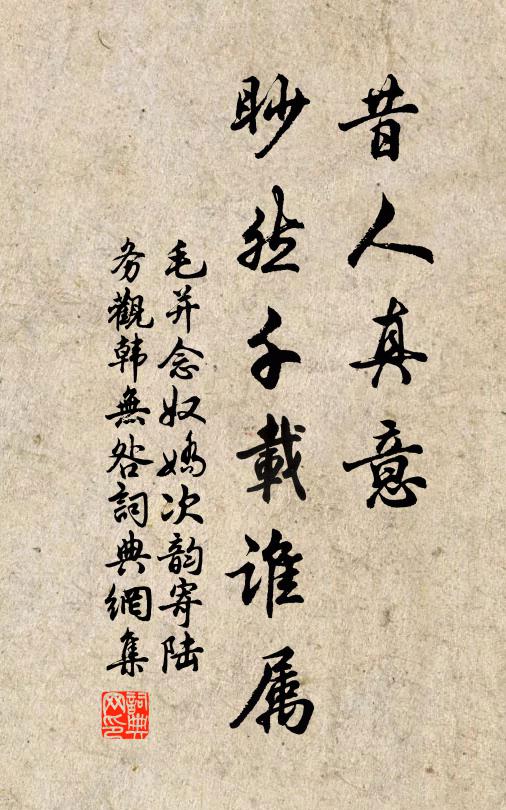 昔人真意
眇然千载谁属
毛并念奴娇次韵寄陆
务觀韩無咎詞典網集
詞典
网印